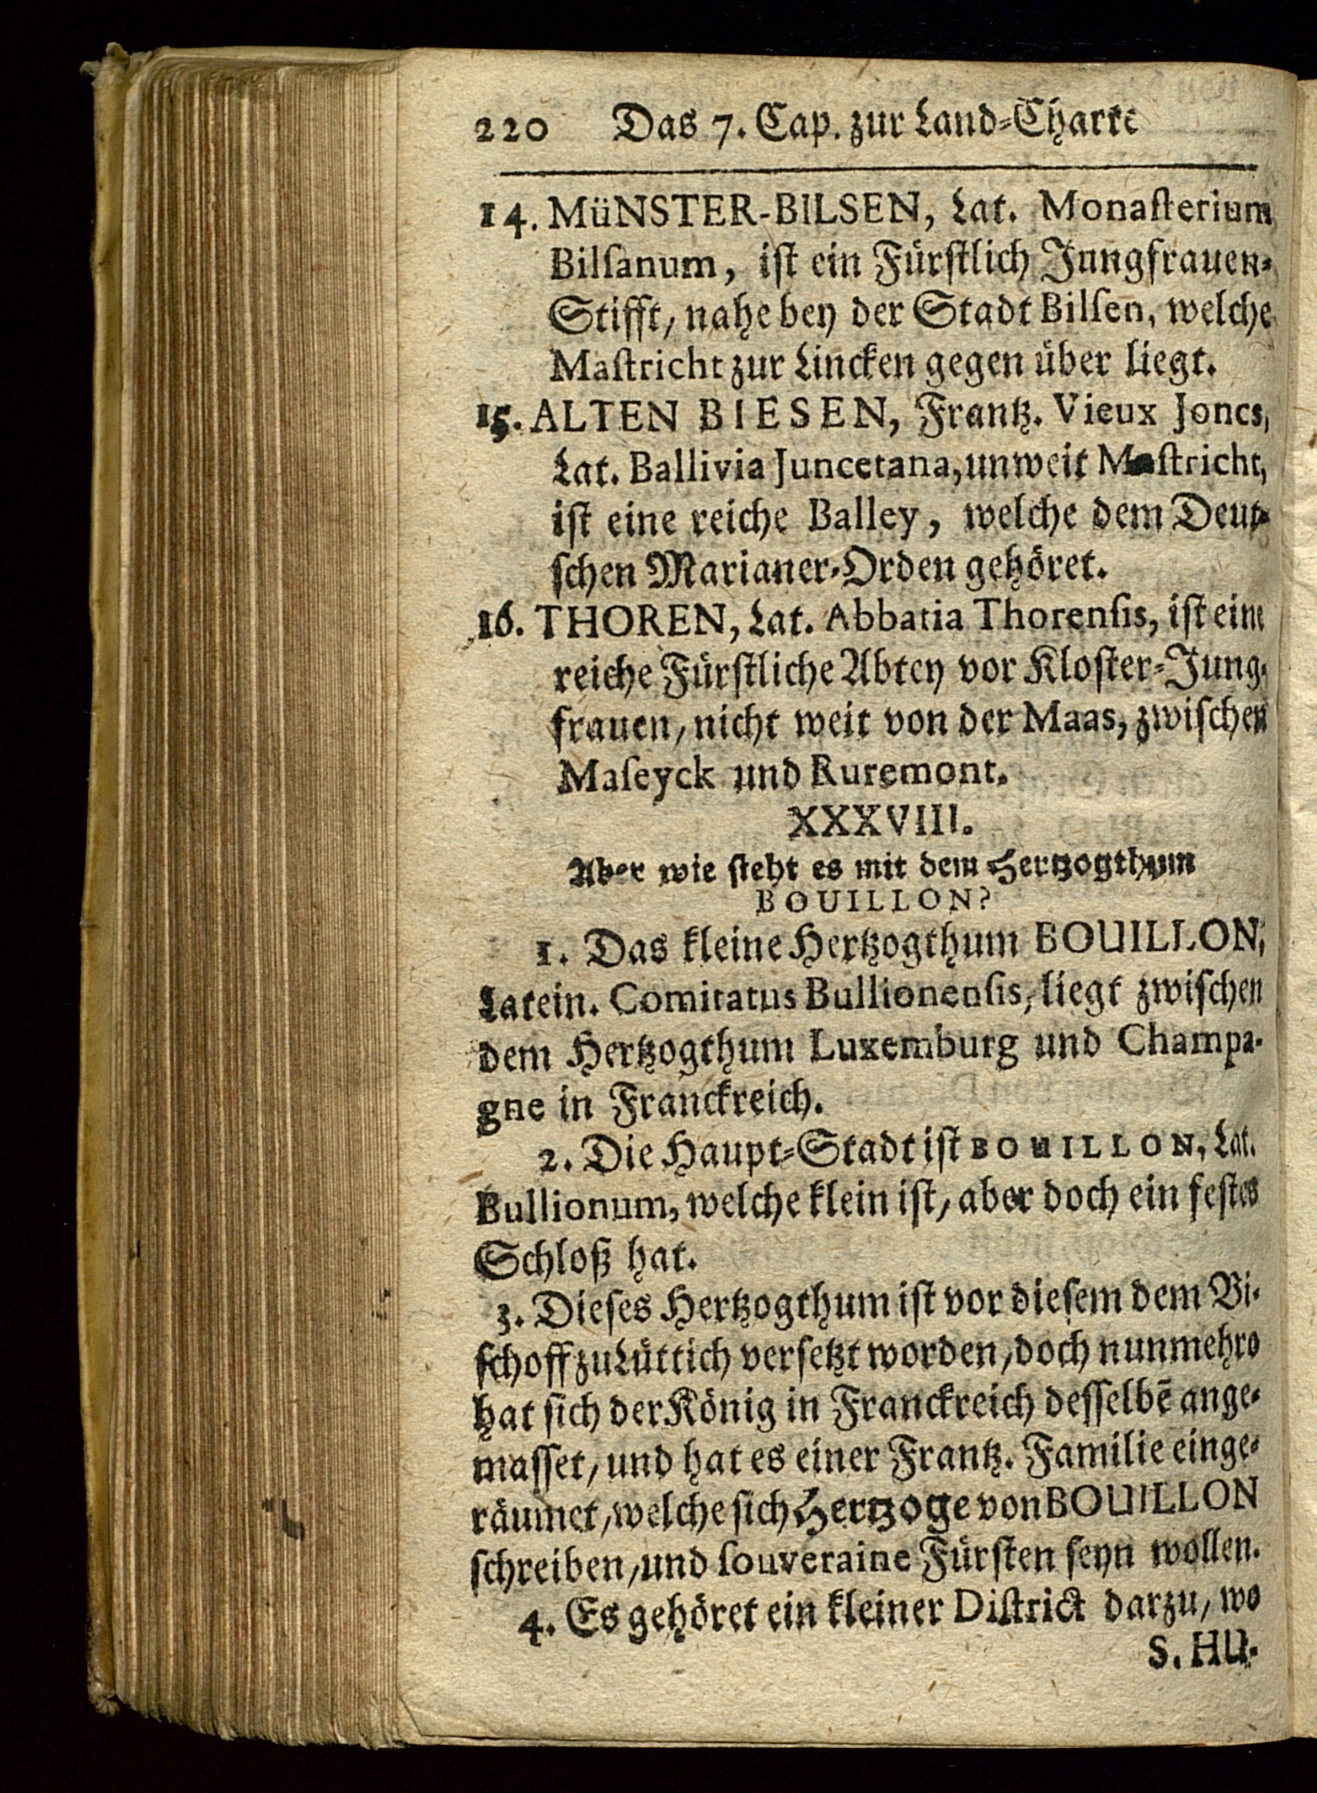 220 Das 7. Cap. zur Land-Charte
14. MüNSTER-BILSEN, Lat. Monaſterium
Bilſanum, iſt ein Fürſtlich Jungfrauen-
Stifft, nahe bey der Stadt Bilſen, welche
Maſtricht zur Lincken gegen über liegt.
15. ALTEN BIESEN, Frantz. Vieux Joncs,
Lat. Ballivia Juncetana, unweit Maſtricht,
iſt eine reiche Balley, welche dem Deut-
ſchen Marianer-Orden gehöret.
16. THOREN, Lat. Abbatia Thorenſis, iſt eine
reiche Fürſtliche Abtey vor Kloſter-Jung-
frauen, nicht weit von der Maas, zwiſchen
Maſeyck und Ruremont.
XXXVIII.
Aber wie ſteht es mit dem Hertzogthum
BOUILLON?
1. Das kleine Hertzogthum BOUILLON,
Latein. Comitatus Bullionenſis, liegt zwiſchen
dem Hertzogthum Luxemburg und Champa-
gne in Franckreich.
2. Die Haupt-Stadt iſt BOUILLON, Lat.
Bullionum, welche klein iſt, aber doch ein feſtes
Schloß hat.
3. Dieſes Hertzogthum iſt vor dieſem dem Bi-
ſchoff zu Lüttich verſetzt worden, doch nunmehro
hat ſich der König in Franckreich deſſelbē ange-
maſſet, und hat es einer Frantz. Familie einge-
räumet, welche ſich Hertzoge von BOUILLON
ſchreiben, und ſouveraine Fürſten ſeyn wollen.
4. Es gehöret ein kleiner Diſtrict darzu, wo
S. HU-